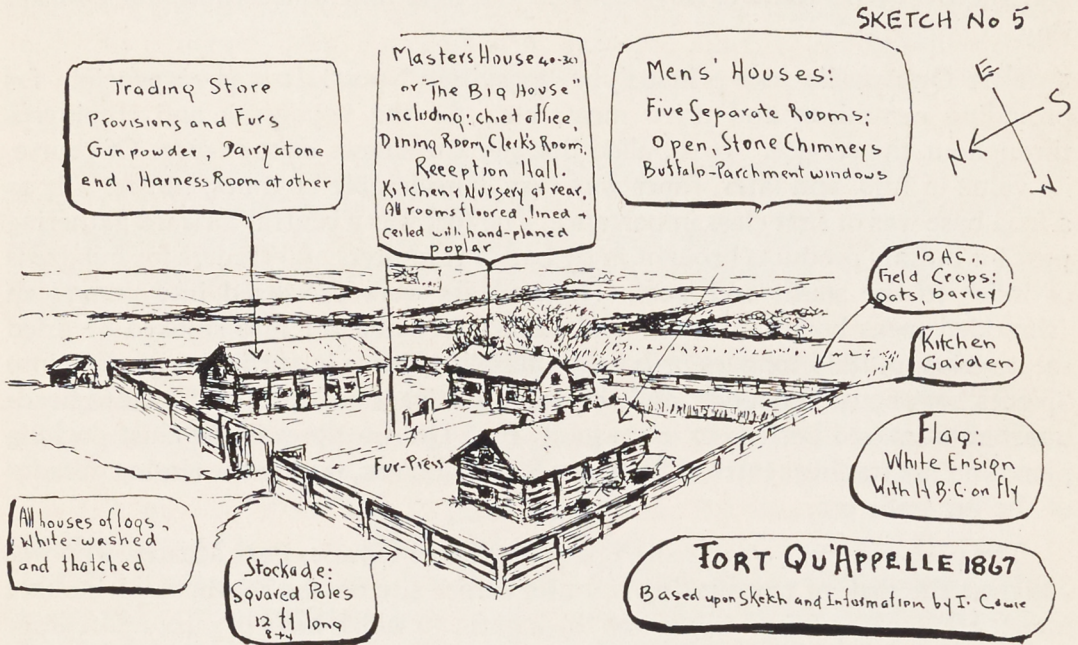 SKETCH No 5
Trading Store
Provisions and Furs
Gunpowder, Dairy at one
end, Harness Room at other
Master's House 40-30
or "The Big House"
including: chief office,
Dining Room, Clerk's Room,
Reception Hall.
Kitchen & Nursery at rear.
All rooms floored, lined +
ceiled with hand-planed
poplar
Mens' Houses:
Five Separate Rooms;
Open, Stone Chimneys
Buffalo-Parchment windows
E
S
N
W
10 AC.,
Field Crops:
oats, barley
Kitchen
Garden
Fur-Press
Flag:
White Ensign
With H.B.C. on fly
All houses of logs,
white-washed
and thatched
Stockade:
Squared Poles
12 ft long
FORT QU'APPELLE 1867
Based upon Sketch and Information by I. Cowie